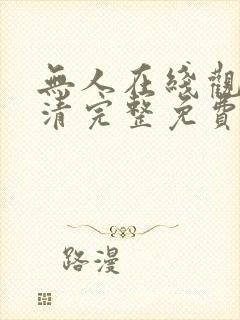 無人在綫觀
清完整免費
路漫